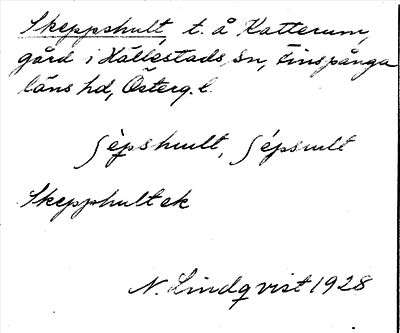 Skeppshult, t. å Katterum,
gård i Hällestads sn, Finspånga
läns hd, Österg. l.
ʃèpshult, ʃépsult
Skepphultek
N. Lindqvist 1928